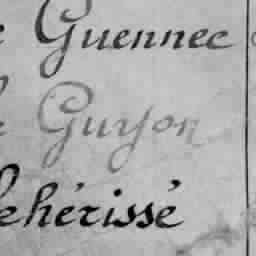 e Guennec
e Guyon
Lehérissé